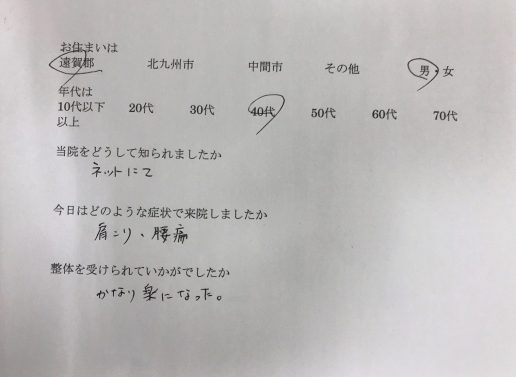 お住まいは
遠賀郡 北九州市 中間市 その他 男・女
年代は
10代以下 20代 30代 40代 50代 60代 70代
以上
当院をどうして知られましたか
ネットにて
今日はどのような症状で来院しましたか
肩こり、腰痛
整体を受けられていかがでしたか
かなり楽になった。